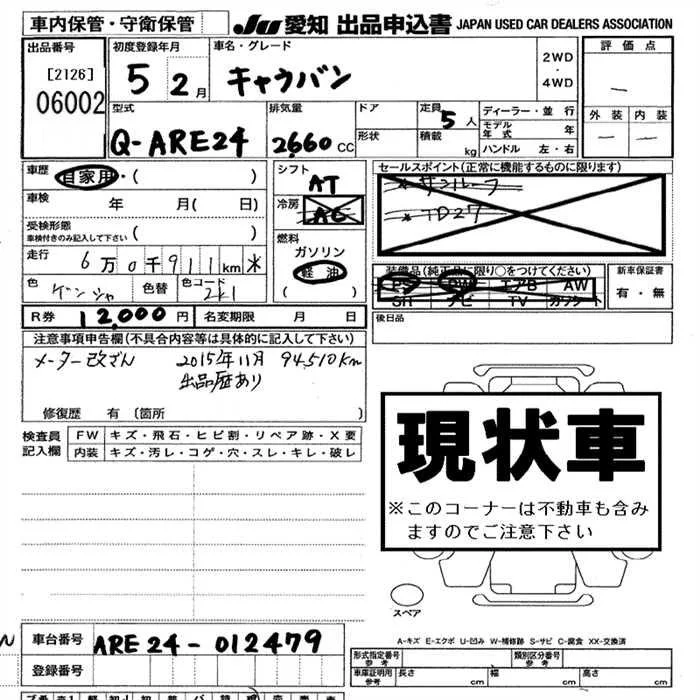 車内保管・守衛保管
JU 愛知 出品申込書 JAPAN USED CAR DEALERS ASSOCIATION
出品番号
[2126]
06002
初度登録年月
5 2月
車名・グレード
キャラバン
2WD
・
4WD
評価点
—
外装 内装
— —
型式
Q-ARE24
排気量
2660 CC
ドア
形状
定員 5 人
積載 kg
ディーラー・並行
モデル年式 年
ハンドル 左・右
車歴 自家用・( )
車検 年 月( 日)
受検形態
車検付きのみ記入して下さい ( )
走行 6万0千911km
色 ゲンシャ 色替 色コード 2k1
シフト
AT
冷房
AC
燃料
ガソリン
軽油
( )
セールスポイント(正常に機能するものに限ります)
* サンルーフ
* TD27
装備品(純正品に限り○をつけてください)
PS PW エアB AW
SR ナビ TV カワシート
新車保証書
有・無
後日品
R券 12,000円 名変期限 月 日
注意事項申告欄(不具合内容等は具体的に記入して下さい)
メーター改ざん 2015年11月 94,510km
出品歴あり
修復歴 有 〔箇所 〕
検査員
記入欄
FW キズ・飛石・ヒビ割・リペア跡・X要
内装 キズ・汚レ・コゲ・穴・スレ・キレ・破レ
現状車
※このコーナーは不動車も含み
ますのでご注意下さい
スペア
A-キズ E-エクボ U-凹み W-補修跡 S-サビ C-腐食 XX-交換済
車台番号 ARE24-012479
登録番号
形式指定番号
参考
類別区分番号
参考
車庫証明用
参考
長さ cm 幅 cm 高さ cm